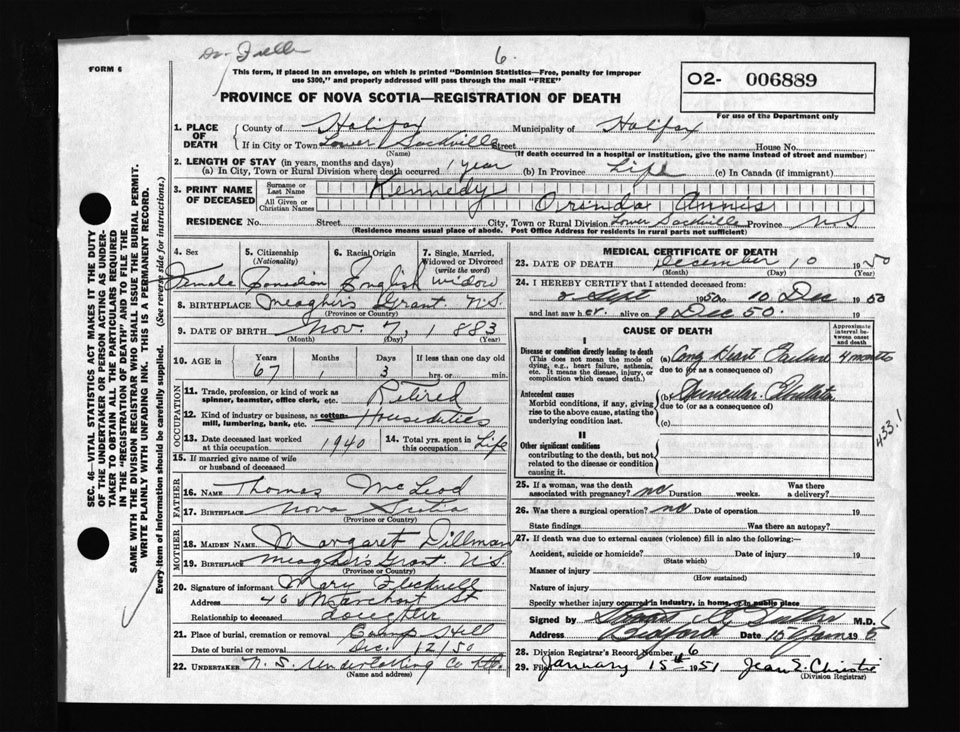 Dr.
6.
FORM 6
This form, if placed in an envelope, on which is printed "Dominion Statistics—Free, penalty for improper
use $300," and properly addressed will pass through the mail "FREE"
PROVINCE OF NOVA SCOTIA—REGISTRATION OF DEATH
O2- 006889
For use of the Department only
1. PLACE OF DEATH
County of Halifax Municipality of Halifax
If in City or Town Lower Sackville Street House No.
(Name) (If death occurred in a hospital or institution, give the name instead of street and number)
2. LENGTH OF STAY (in years, months and days)
(a) In City, Town or Rural Division where death occurred 1 year (b) In Province Life (c) In Canada (if immigrant)
3. PRINT NAME OF DECEASED
Surname or Last Name Kennedy
All Given or Christian Names Orinda Annis
RESIDENCE No. Street City, Town or Rural Division Lower Sackville Province N S
(Residence means usual place of abode. Post Office Address for residents in rural parts not sufficient)
4. Sex 5. Citizenship (Nationality) 6. Racial Origin 7. Single, Married, Widowed or Divorced (write the word)
Female Canadian English Widow
8. BIRTHPLACE Meagher's Grant N.S.
(Province or Country)
9. DATE OF BIRTH Nov. 7, 1883
(Month) (Day) (Year)
10. AGE in Years Months Days If less than one day old
67 1 3 hrs. or min.
OCCUPATION
11. Trade, profession, or kind of work as spinner, teamster, office clerk, etc. Retired
12. Kind of industry or business, as cotton-mill, lumbering, bank, etc. Houseduties
13. Date deceased last worked at this occupation 1940 14. Total yrs. spent in this occupation Life
15. If married give name of wife or husband of deceased
FATHER
16. NAME Thomas McLeod
17. BIRTHPLACE Nova Scotia
(Province or Country)
MOTHER
18. MAIDEN NAME Margaret Dillman
19. BIRTHPLACE Meagher's Grant N.S.
(Province or Country)
20. Signature of informant Mary
Address 46 St
Relationship to deceased Daughter
21. Place of burial, cremation or removal Camp Hill
Date of burial or removal Dec. 12/50
22. UNDERTAKER N. S. Undertaking Co Ltd.
(Name and address)
MEDICAL CERTIFICATE OF DEATH
23. DATE OF DEATH December 10 1950
(Month) (Day) (Year)
24. I HEREBY CERTIFY that I attended deceased from
8 Sept 1950 to 10 Dec 1950
and last saw her alive on 9 Dec 50.
CAUSE OF DEATH
Approximate interval between onset and death
I
Disease or condition directly leading to death (This does not mean the mode of dying, e.g., heart failure, asthenia, etc. It means the disease, injury, or complication which caused death.)
(a) Cong Heart Failure 4 months
due to (or as a consequence of)
Antecedent causes
Morbid conditions, if any, giving rise to the above cause, stating the underlying condition last.
(b)
due to (or as a consequence of)
(c)
433.1
II
Other significant conditions contributing to the death, but not related to the disease or condition causing it.
25. If a woman, was the death associated with pregnancy? no Duration weeks. Was there a delivery?
26. Was there a surgical operation? no Date of operation 19
State findings Was there an autopsy?
27. If death was due to external causes (violence) fill in also the following:—
Accident, suicide or homicide? Date of injury 19
(State which)
Manner of injury
(How sustained)
Nature of injury
Specify whether injury occurred in industry, in home, or in public place
Signed by M.D.
Address Bedford Date 15 Jan 19
28. Division Registrar's Record Number 6
29. Filed January 15th 1951 Jean E. Christie
(Division Registrar)
SEC. 46—VITAL STATISTICS ACT MAKES IT THE DUTY
OF THE UNDERTAKER OR PERSON ACTING AS UNDER-
TAKER TO OBTAIN ALL THE PARTICULARS REQUIRED
IN THE "REGISTRATION OF DEATH" AND TO FILE THE
SAME WITH THE DIVISION REGISTRAR WHO SHALL ISSUE THE BURIAL PERMIT.
WRITE PLAINLY WITH UNFADING INK. THIS IS A PERMANENT RECORD.
Every item of information should be carefully supplied. (See reverse side for instructions.)